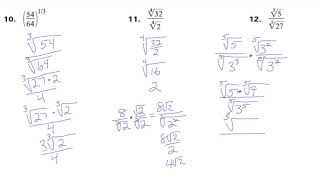 10. (54/64)^{1/3}
∛54
∛64
∛27 · 2
4
∛27 · ∛2
4
3∛2
4
11. ∜32
∜2
∜32/2
∜16
2
8/√2 · √2/√2 = 8√2/√2²
8√2
2
4√2
12. ⁵√5
⁵√27
⁵√5 · ⁵√3²
⁵√3³ ⁵√3²
⁵√5 · ⁵√9
⁵√3⁵